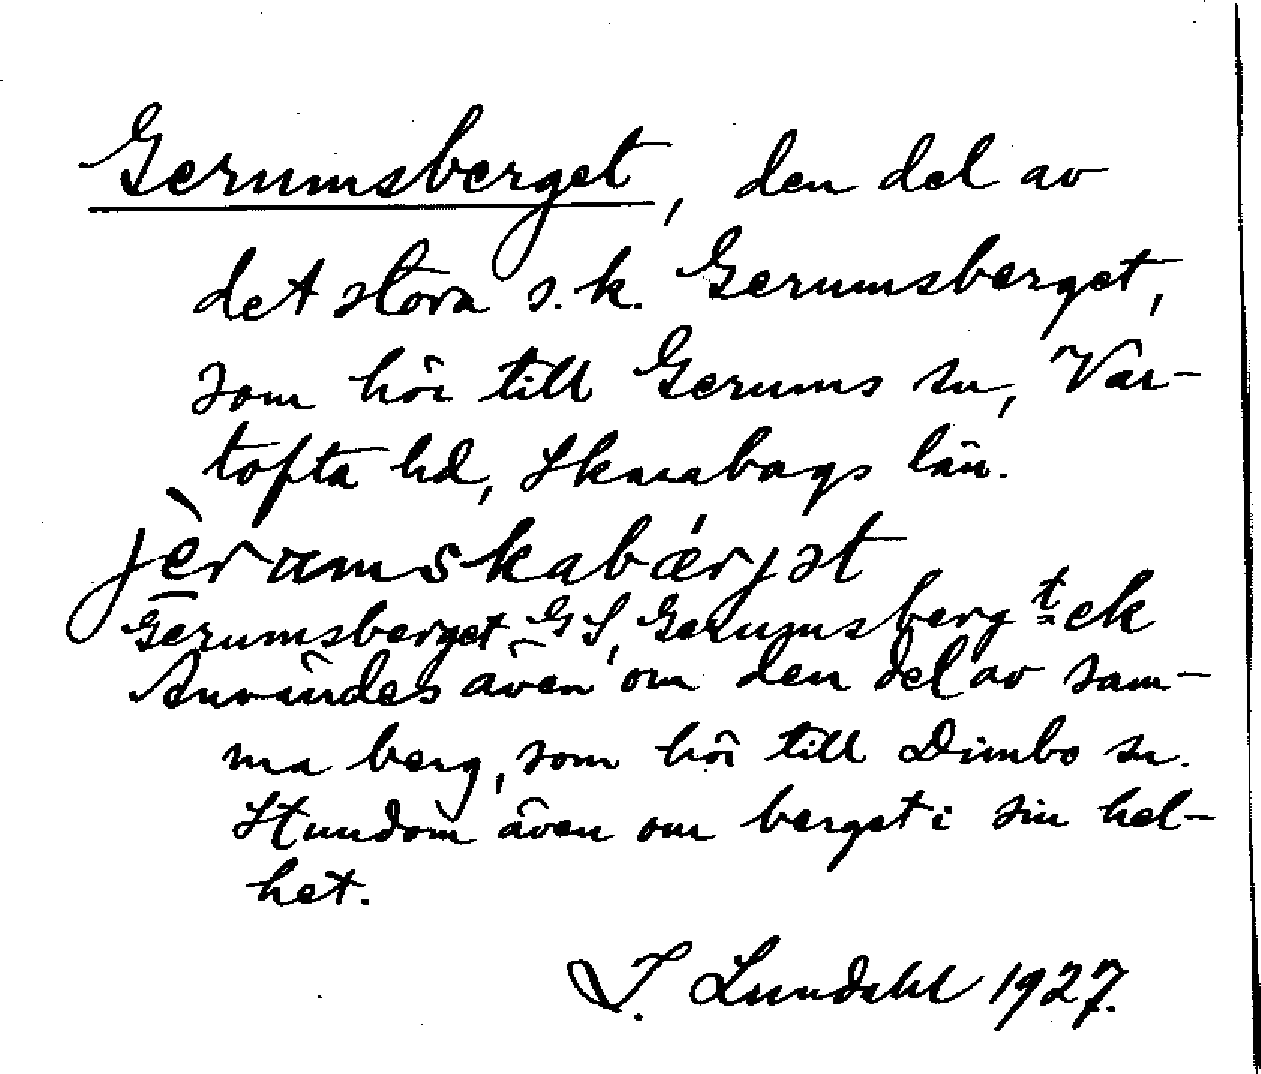 Gerumsberget, den del av
det stora s.k. Gerumsberget,
som hör till Gerums sn, Var-
tofta hd, Skarabogs län.
jèramskabǽrjət
Gerumsberget GS, Gerumsberg t ek
Användes även om den del av sam-
ma berg, som hör till Dimbo sn.
Stundom även om berget i sin hel-
het.
I. Lundahl 1927.